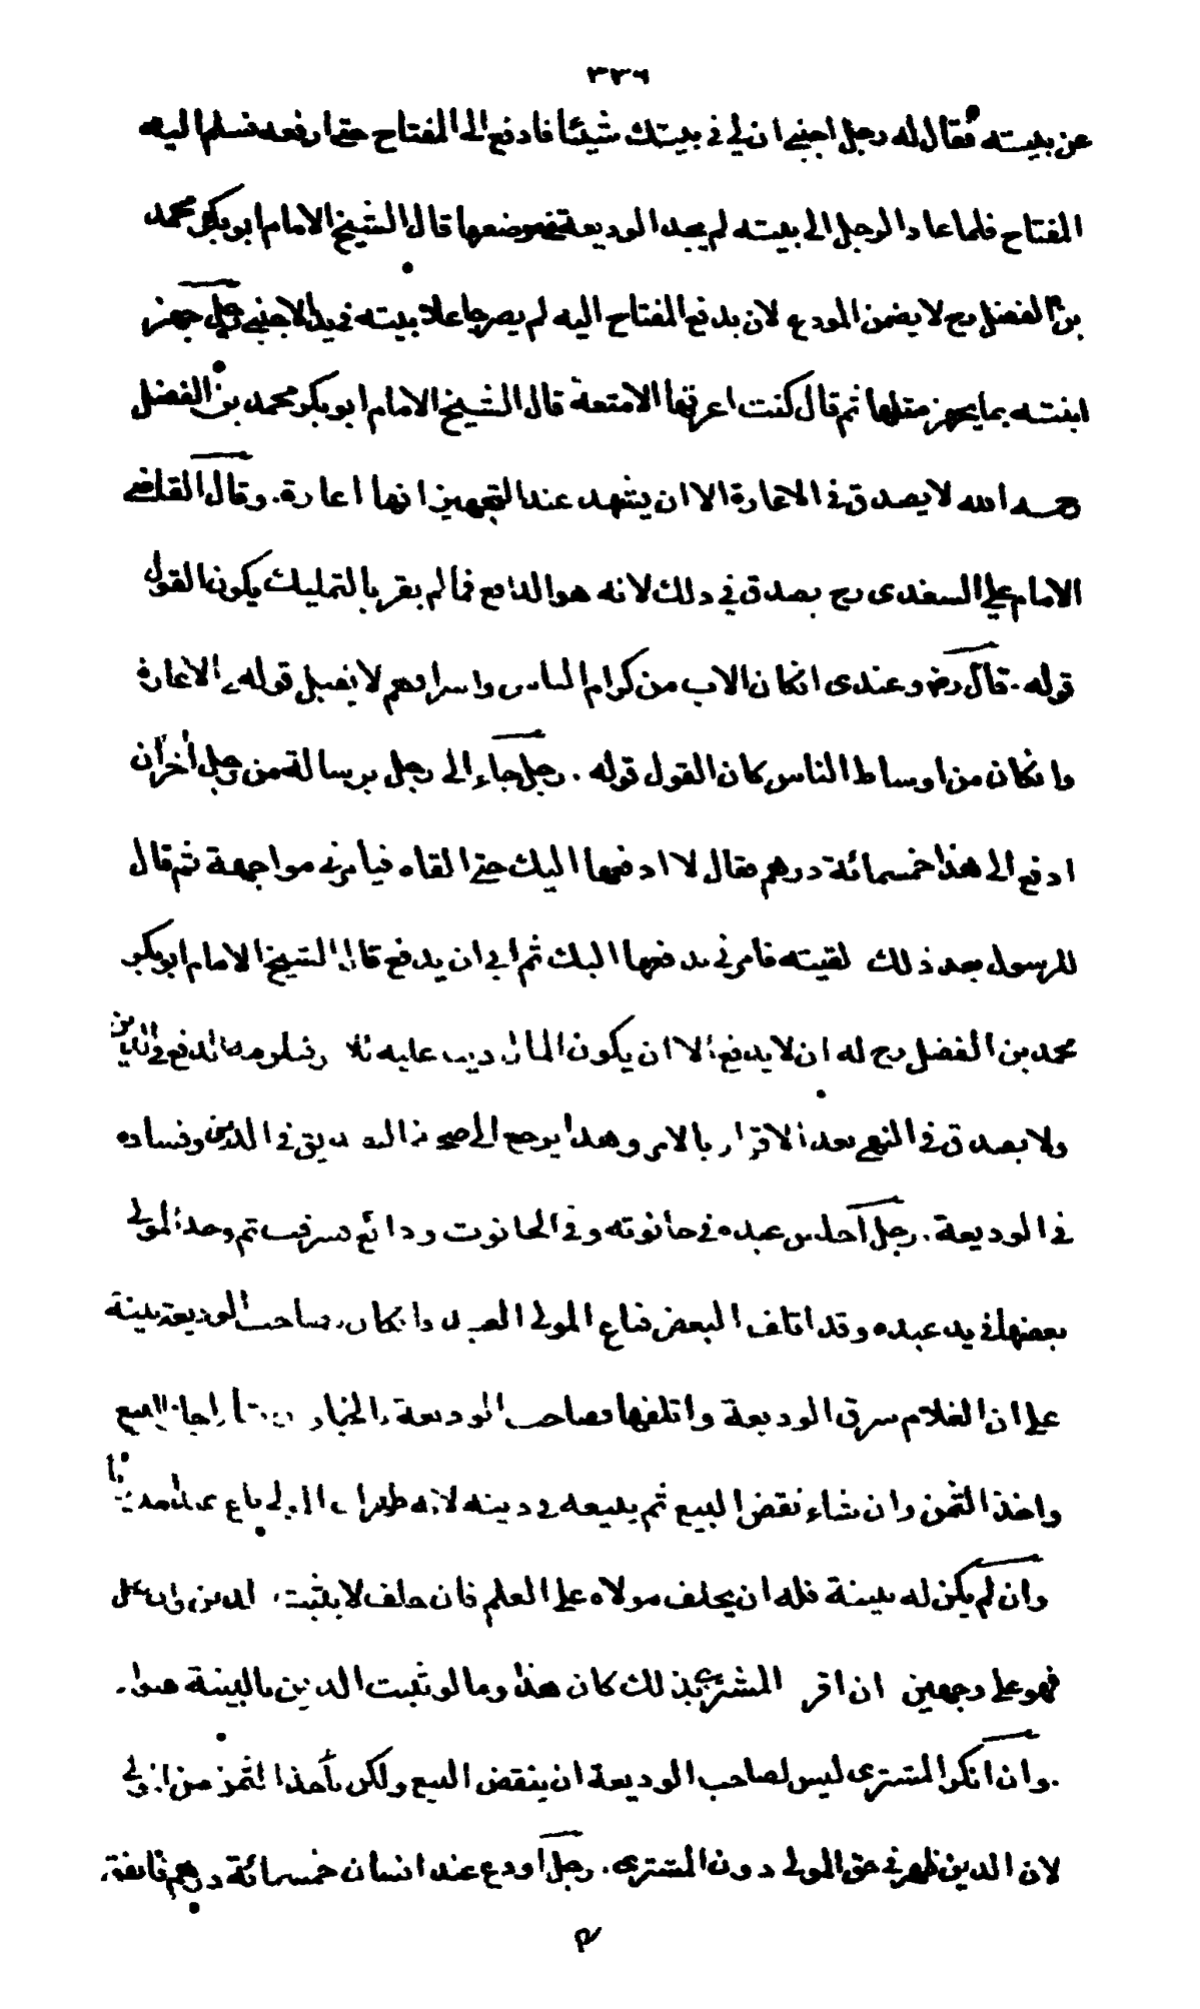 ٣٣٦
عن بيته فقال له رجل اجنبي ان لي في بيتك شيئا فادفع الى المفتاح حتى ارفعه فسلم اليه
المفتاح فلما عاد الرجل الى بيته لم يجد الوديعة في موضعها قال الشيخ الامام ابو بكر محمد
بن الفضل رح لا يضمن المودع لان بدفع المفتاح اليه لم يصر جاعلا بيته في يد الاجنبي رجل جهز
ابنته بما يجهز مثلها ثم قال كنت اعرتها الامتعة قال الشيخ الامام ابو بكر محمد بن الفضل
رحمه الله لا يصدق في الاعارة الا ان يشهد عند التجهيز انها اعارة. وقال القاضي
الامام علي السغدى رح يصدق في ذلك لانه هو الدافع فما لم يقر بالتمليك يكون القول
قوله. قال رض وعندى انكان الاب من كرام الناس واشرافهم لا يقبل قوله في الاعارة
وانكان من اوساط الناس كان القول قوله. رجل جاء الى رجل برسالة من رجل أخر أن
ادفع الى هذا خمسمائة درهم فقال لا ادفعها اليك حتى القاه فيامرني مواجهة ثم قال
للرسول بعد ذلك لقيته فامرني بدفعها اليك ثم ابى ان يدفع قال الشيخ الامام ابو بكر
محمد بن الفضل رح له ان لا يدفع الا ان يكون المال دينا عليه الدفع في الدين
ولا يصدق في النهي بعد الاقرار بالامر وهذا يرجع الى صحة التصديق في الدين وفساده
في الوديعة. رجل أجلس عبده في حانوته وفي الحانوت ودائع فسرقت ثم وجد المولى
بعضها في يد عبده وقد اتلف البعض فباع المولى العبد وانكان لصاحب الوديعة بينة
على ان الغلام سرق الوديعة واتلفها فصاحب الوديعة بالخيار ان شاء اجاز البيع
واخذ الثمن وان شاء نقض البيع ثم يبيعه في دينه لانه ظهر ان المولى باع عبدا مديونا
وان لم يكن له بينة فله ان يحلف مولاه على العلم فان حلف لا يثبت الدين وان نكل
فهو على وجهين ان اقر المشتري بذلك كان هذا وما لو ثبت الدين بالبينة سواء.
وان انكر المشترى ليس لصاحب الوديعة ان ينقض البيع ولكن يأخذ الثمن من المولى
لان الدين ظهر في حق المولى دون المشترى. رجل أودع عند انسان خمسمائة درهم